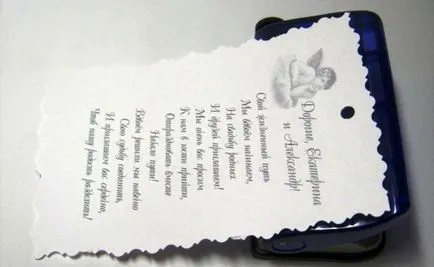 Дорогие, Екатерина
и Александр!
Свой жизненный путь
Мы вдвоём начинаем,
На свадьбу родных
И друзей приглашаем!
Мы очень вас просим
К нам в гости прийти,
Отпраздновать вместе
Начало пути!
Вдвоём решили мы навечно
Свою судьбу соединить,
И приглашаем вас сердечно,
Чтоб нашу радость разделить!